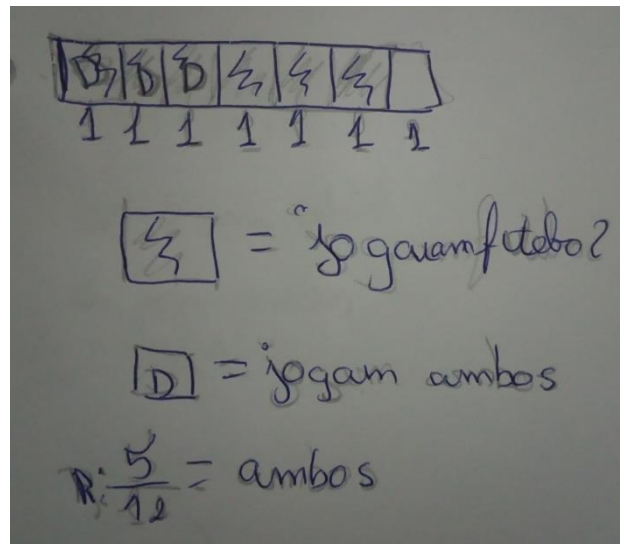 D D D
1 1 1 1 1 1 1
= jogavam futebol
D = jogam ambos
R: 5/12 = ambos